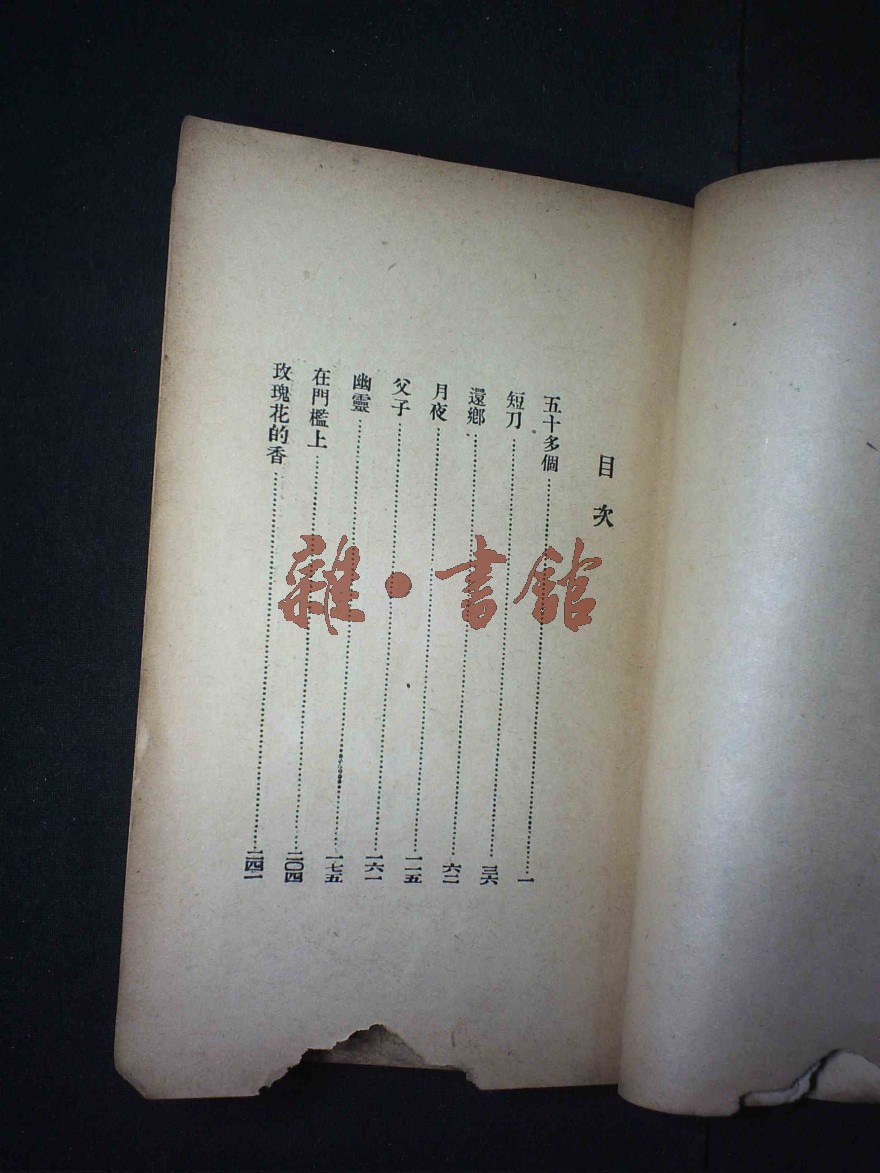 目次
五十多個……一
短刀……三六
還鄉……六二
月夜……一一五
父子……一六一
幽靈……一七五
在門檻上……二〇四
玫瑰花的香……二四二
雜·書館